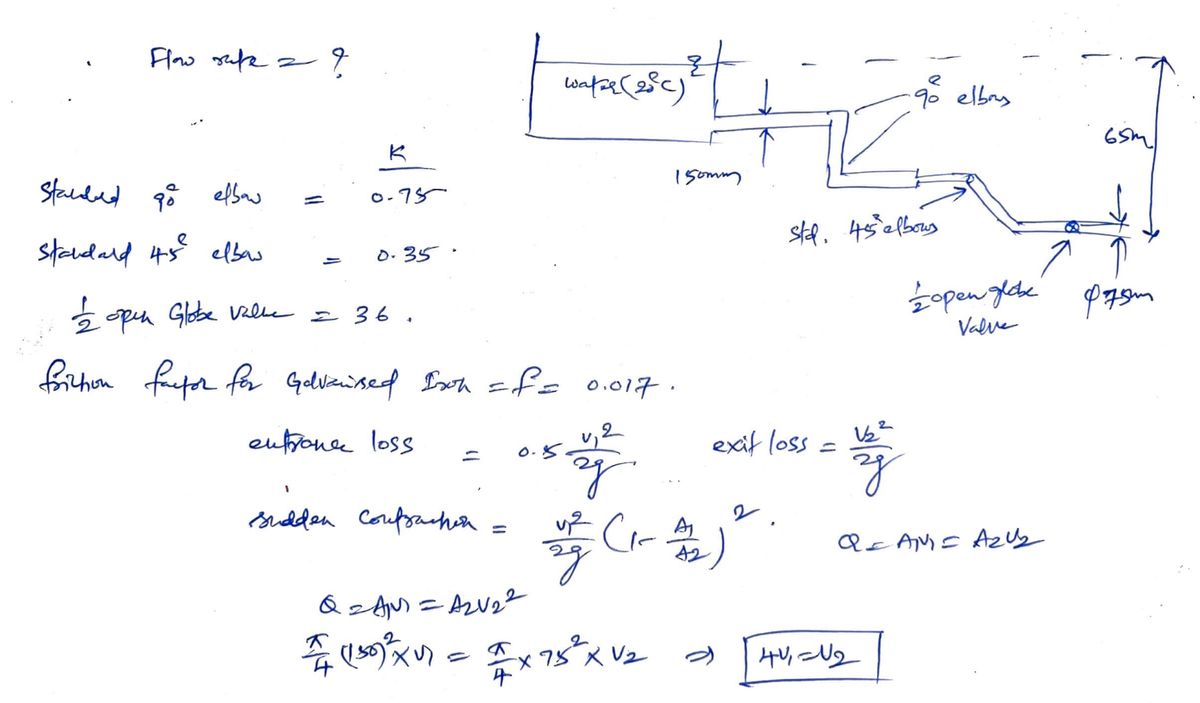 Flow rate = ?
water (20°C)
90° elbows
65m
150mm
Std. 45° elbows
1/2 open globe
Valve
φ75m
K
Standard 90° elbow = 0.75
Standard 45° elbow = 0.35.
1/2 open Globe Valve = 36.
friction factor for Galvanised Iron = f = 0.017.
entrance loss = 0.5 V₁²/2g exit loss = V₂²/2g
sudden contraction = V₁²/2g (1- A₁/A₂)². Q = A₁V₁ = A₂V₂
Q = A₁V₁ = A₂V₂²
π/4 (150)² × V₁ = π/4 × 75² × V₂ ⇒ 4V₁ = V₂